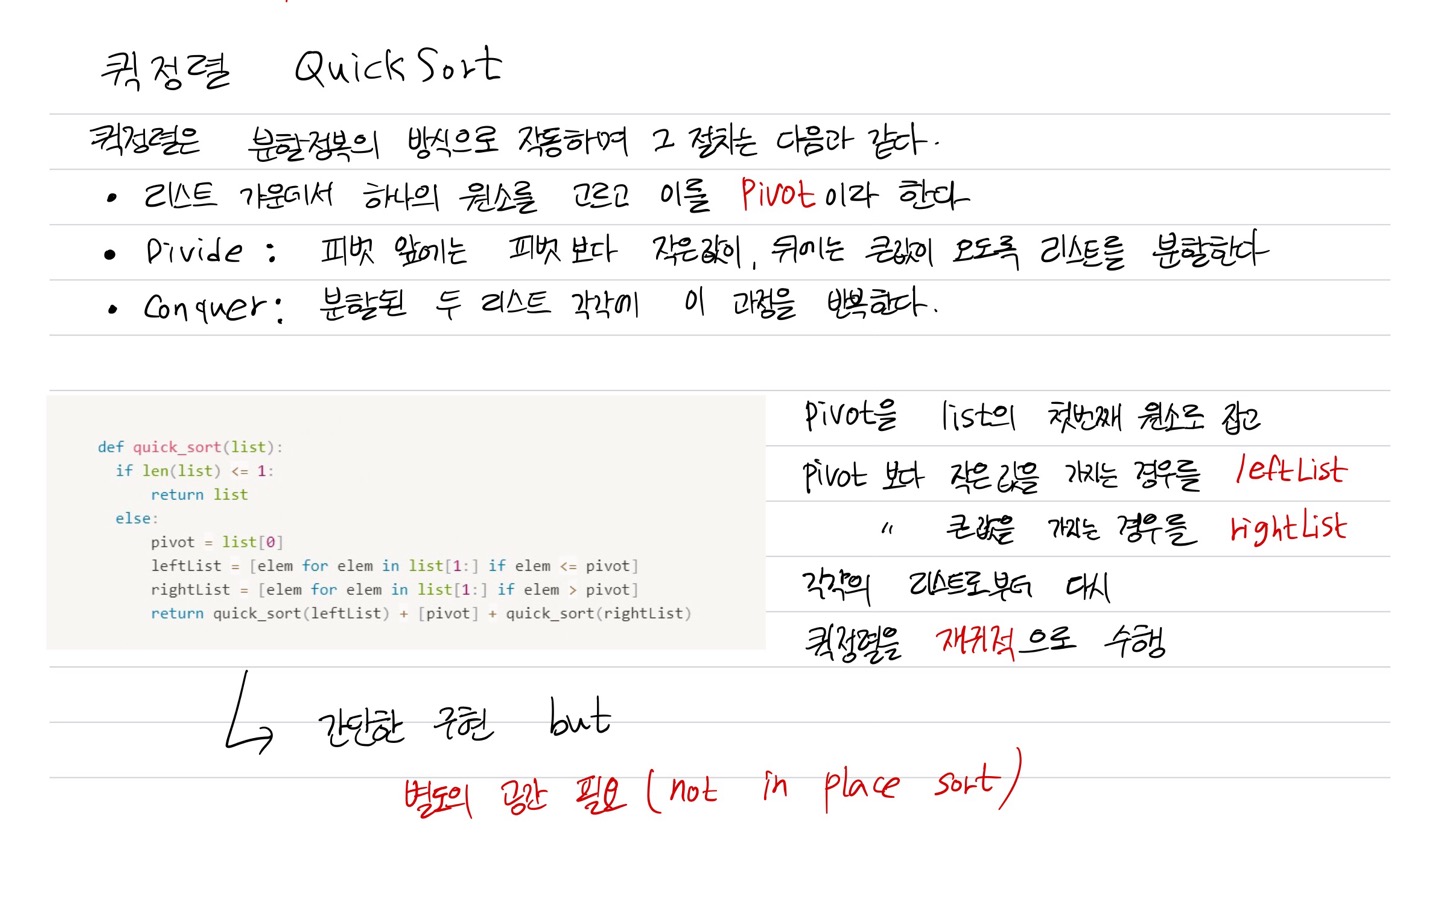 퀵정렬 Quick Sort
퀵정렬은 분할정복의 방식으로 작동하며 그 절차는 다음과 같다.
• 리스트 가운데서 하나의 원소를 고르고 이를 Pivot이라 한다
• Divide : 피벗 앞에는 피벗 보다 작은값이, 뒤에는 큰값이 오도록 리스트를 분할한다
• Conquer : 분할된 두 리스트 각각에 이 과정을 반복한다.
def quick_sort(list):
if len(list) <= 1:
return list
else:
pivot = list[0]
leftList = [elem for elem in list[1:] if elem <= pivot]
rightList = [elem for elem in list[1:] if elem > pivot]
return quick_sort(leftList) + [pivot] + quick_sort(rightList)
Pivot을 list의 첫번째 원소로 잡고
Pivot 보다 작은 값을 가지는 경우를 leftList
〃 큰값을 가지는 경우를 rightList
각각의 리스트로부터 다시
퀵정렬을 재귀적으로 수행
간단한 구현 but
별도의 공간 필요 (not in place sort)